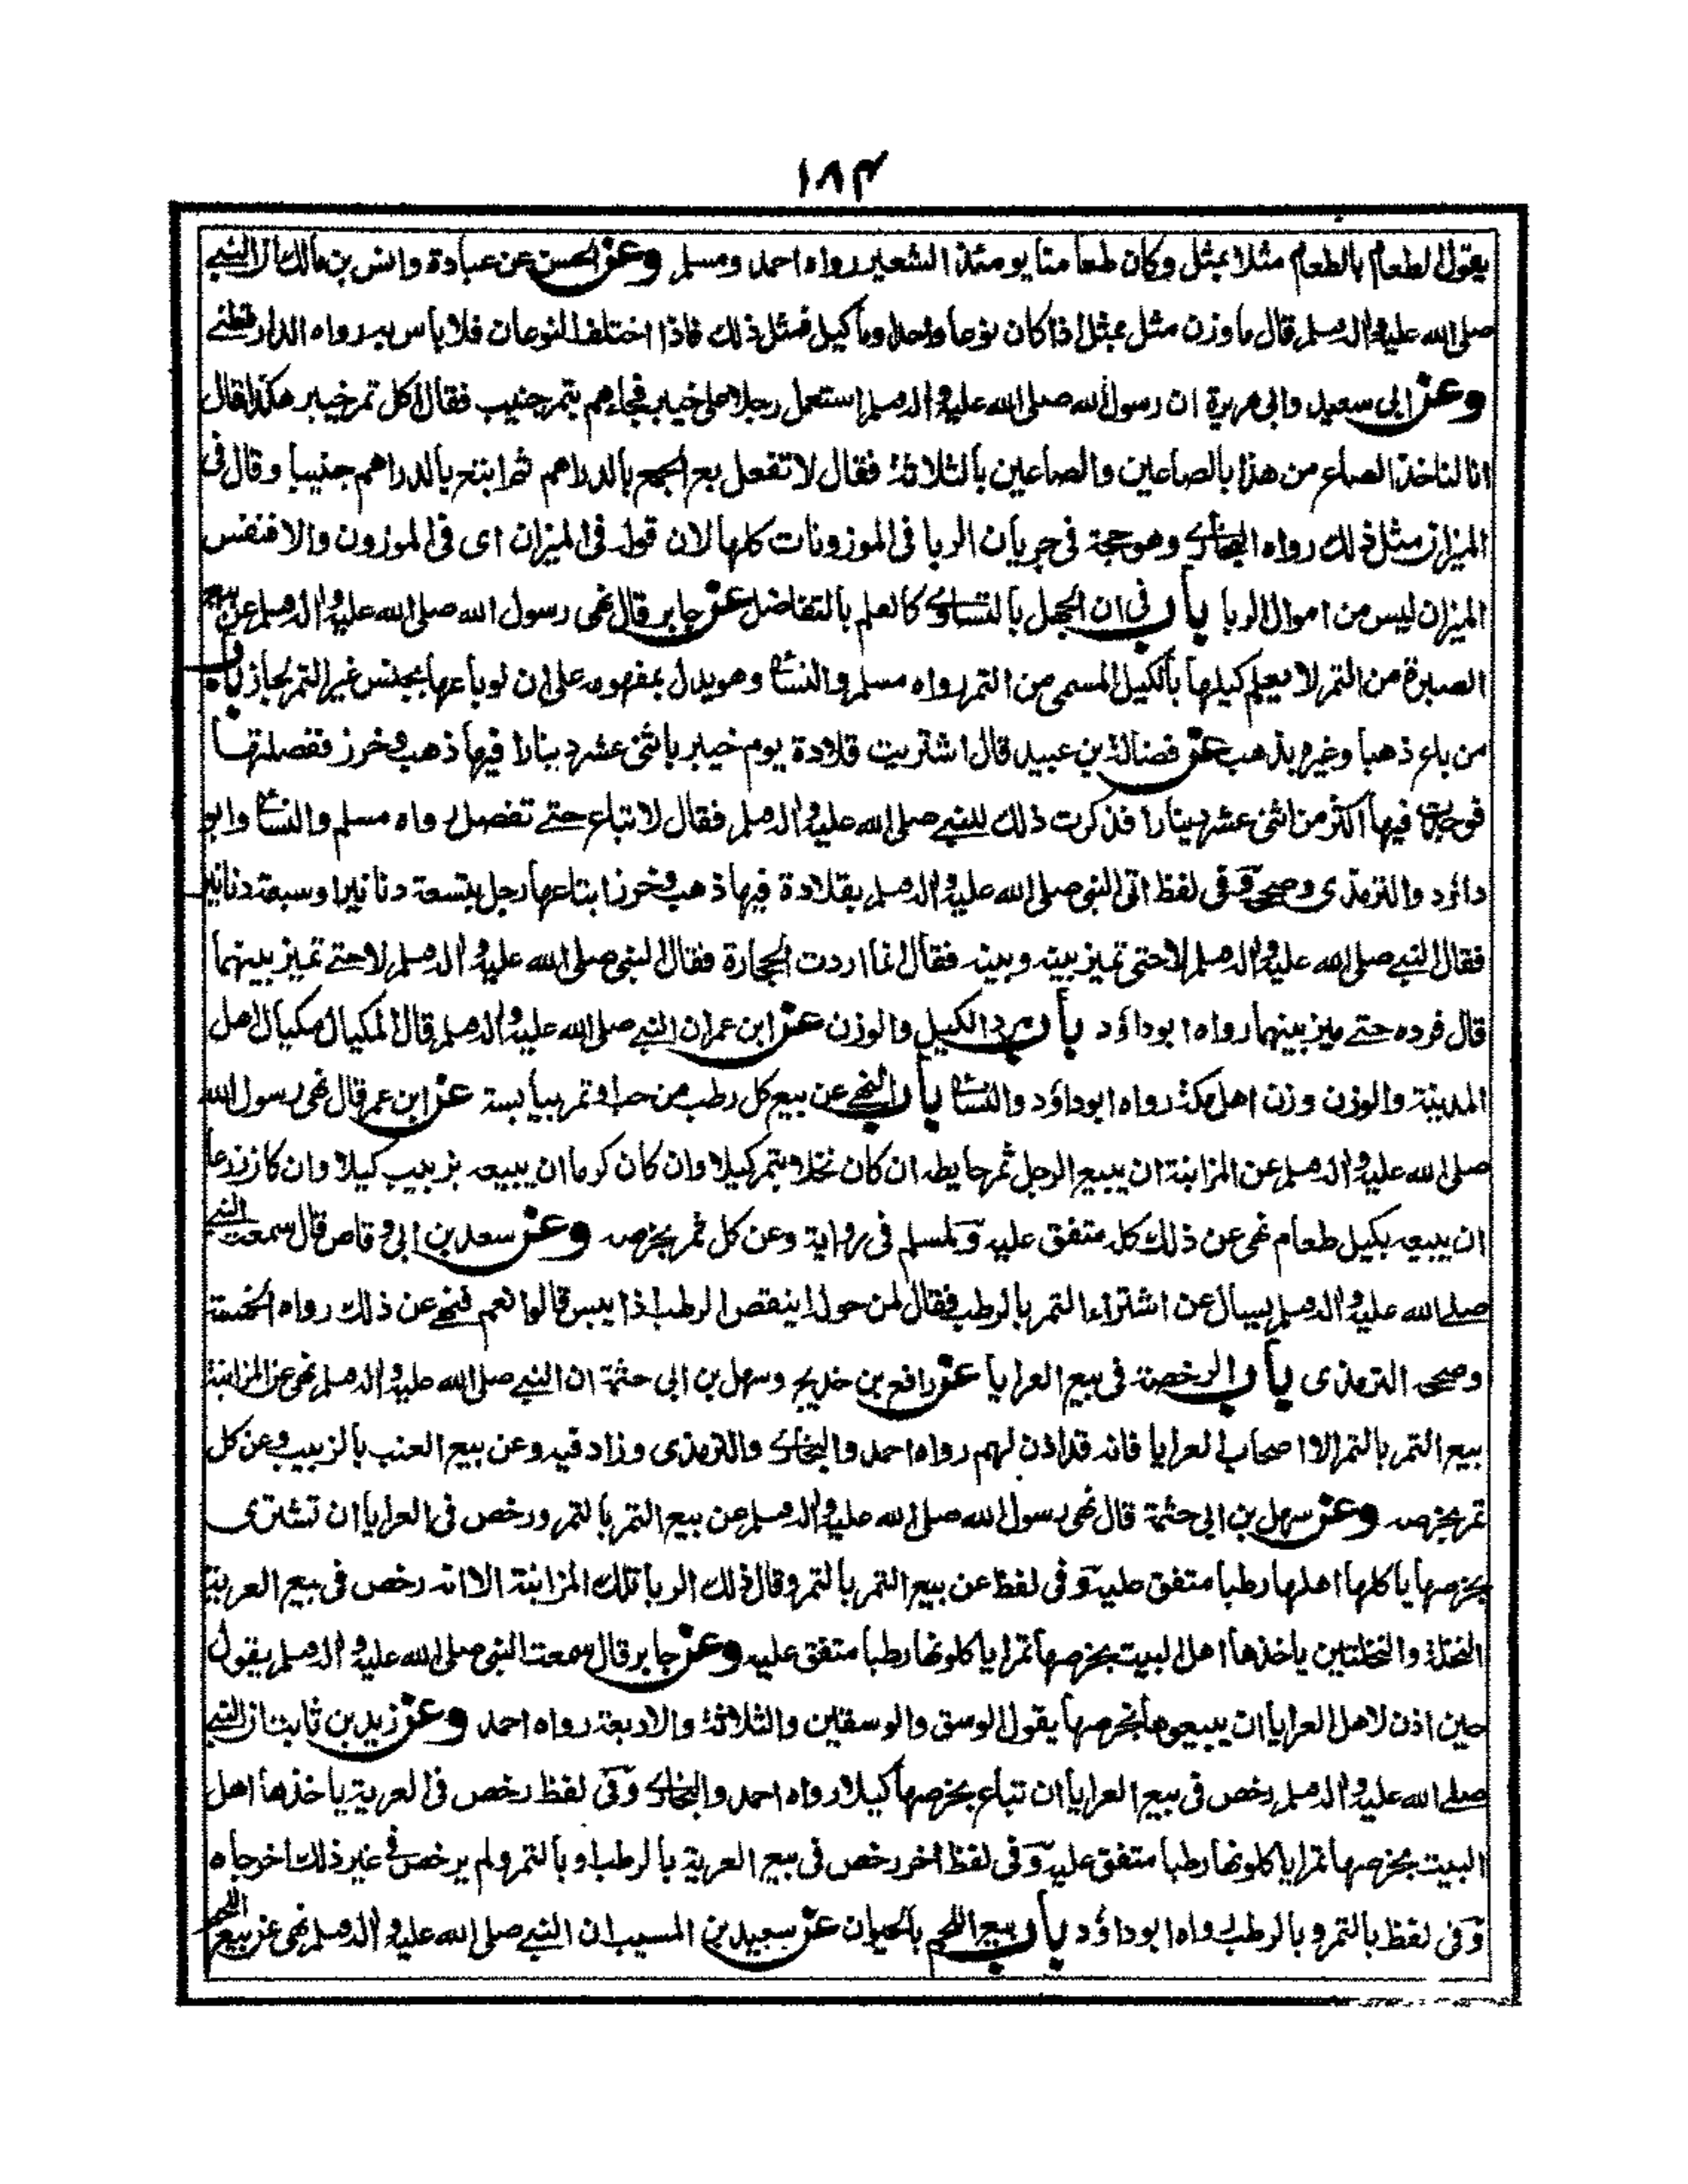 ١٨٤
يقول الطعام بالطعام مثلا بمثل وكان طعامنا يومئذ الشعير رواه احمد ومسلم وعن الحسن عن عبادة وانس بن مالك ان النبي
صلى الله عليه واله وسلم قال ما وزن مثل بمثل اذا كان نوعا واحدا وما كيل فمثل ذلك فاذا اختلف النوعان فلا باس به رواه الدارقطني
وعن ابى سعيد وابى هريرة ان رسول الله صلى الله عليه واله وسلم استعمل رجلا على خيبر فجاءهم بتمر جنيب فقال اكل تمر خيبر هكذا قال
انا لناخذ الصاع من هذا بالصاعين والصاعين بالثلاثة فقال لا تفعل بع الجمع بالدراهم ثم ابتع بالدراهم جنيبا وقال فى
الميزان مثل ذلك رواه البخارى وهو حجة فى جريان الربا فى الموزونات كلها لان قوله فى الميزان اى فى الموزون والا فنفس
الميزان ليس من اموال الربا باب فى ان الجهل بالتساوى كالعلم بالتفاضل عن جابر قال نهى رسول الله صلى الله عليه واله وسلم عن بيع
الصبرة من التمر لا يعلم كيلها بالكيل المسمى من التمر رواه مسلم والنسائى وهو يدل بمفهومه على ان لو باعها بجنس غير التمر لجاز باب
من باع ذهبا وغيره بذهب عن فضالة بن عبيد قال اشتريت قلادة يوم خيبر باثنى عشر دينارا فيها ذهب وخرز ففصلتها
فوجدت فيها اكثر من اثنى عشر دينارا فذكرت ذلك للنبي صلى الله عليه واله وسلم فقال لا تباع حتى تفصل رواه مسلم والنسائى وابو
داؤد والترمذى وصححه وفى لفظ اتى النبى صلى الله عليه واله وسلم بقلادة فيها ذهب وخرز ابتاعها رجل بتسعة دنانير او سبعة دنانير
فقال النبي صلى الله عليه واله وسلم لا حتى تميز بينه وبينه فقال انما اردت الحجارة فقال النبى صلى الله عليه واله وسلم لا حتى تميز بينهما
قال فرده حتى ميز بينهما رواه ابو داؤد باب مرد الكيل والوزن عن ابن عمر ان النبي صلى الله عليه واله وسلم قال المكيال مكيال اهل
المدينة والوزن وزن اهل مكة رواه ابوداؤد والنسائى باب النهى عن بيع كل رطب من حب او تمر بيابسه عن ابن عمر قال نهى رسول الله
صلى الله عليه واله وسلم عن المزابنة ان يبيع الرجل ثمر حايطه ان كان نخلا بتمر كيلا وان كان كرما ان يبيعه بزبيب كيلا وان كان زرعا
ان يبيعه بكيل طعام نهى عن ذلك كله متفق عليه ولمسلم فى رواية وعن كل ثمر بخرصه وعن سعد بن ابى وقاص قال سمعت النبي
صلى الله عليه واله وسلم يسال عن اشتراء التمر بالرطب فقال لمن حوله اينقص الرطب اذا يبس قالوا نعم فنهى عن ذلك رواه الخمسة
وصححه الترمذى باب الرخصة فى بيع العرايا عن رافع بن خديج وسهل بن ابى حثمة ان النبي صلى الله عليه واله وسلم نهى عن المزابنة
بيع التمر بالتمر الا اصحاب العرايا فانه قد اذن لهم رواه احمد والبخارى والترمذى وزاد فيه وعن بيع العنب بالزبيب وعن كل
ثمر بخرصه وعن سهل بن ابى حثمة قال نهى رسول الله صلى الله عليه واله وسلم عن بيع التمر بالتمر ورخص فى العرايا ان تشترى
بخرصها ياكلها اهلها رطبا متفق عليه وفى لفظ عن بيع التمر بالتمر وقال ذلك الربا تلك المزابنة الا انه رخص فى بيع العرية
النخلة والنخلتين ياخذها اهل البيت بخرصها تمرا ياكلونها رطبا متفق عليه وعن جابر قال سمعت النبى صلى الله عليه واله وسلم يقول
حين اذن لاهل العرايا ان يبيعوها بخرصها يقول الوسق والوسقين والثلاثة والاربعة رواه احمد وعن زيد بن ثابت ان النبي
صلى الله عليه واله وسلم رخص فى بيع العرايا ان تباع بخرصها كيلا رواه احمد والبخارى وفى لفظ رخص فى العرية ياخذها اهل
البيت بخرصها تمرا ياكلونها رطبا متفق عليه وفى لفظ اخر رخص فى بيع العرية بالرطب او بالتمر ولم يرخص فى غير ذلك اخرجاه
وفى لفظ بالتمر وبالرطب رواه ابوداؤد باب بيع اللحم بالحيوان عن سعيد بن المسيب ان النبي صلى الله عليه واله وسلم نهى عن بيع اللحم